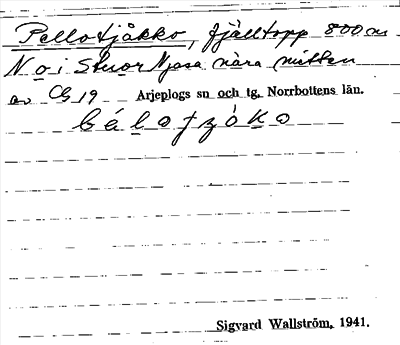 Pellotjåkko, fjälltopp 800 m
N o i Stuor Njasa nära mitten
av Cg 19 Arjeplogs sn och tg, Norrbottens län.
Sigvard Wallström, 1941.